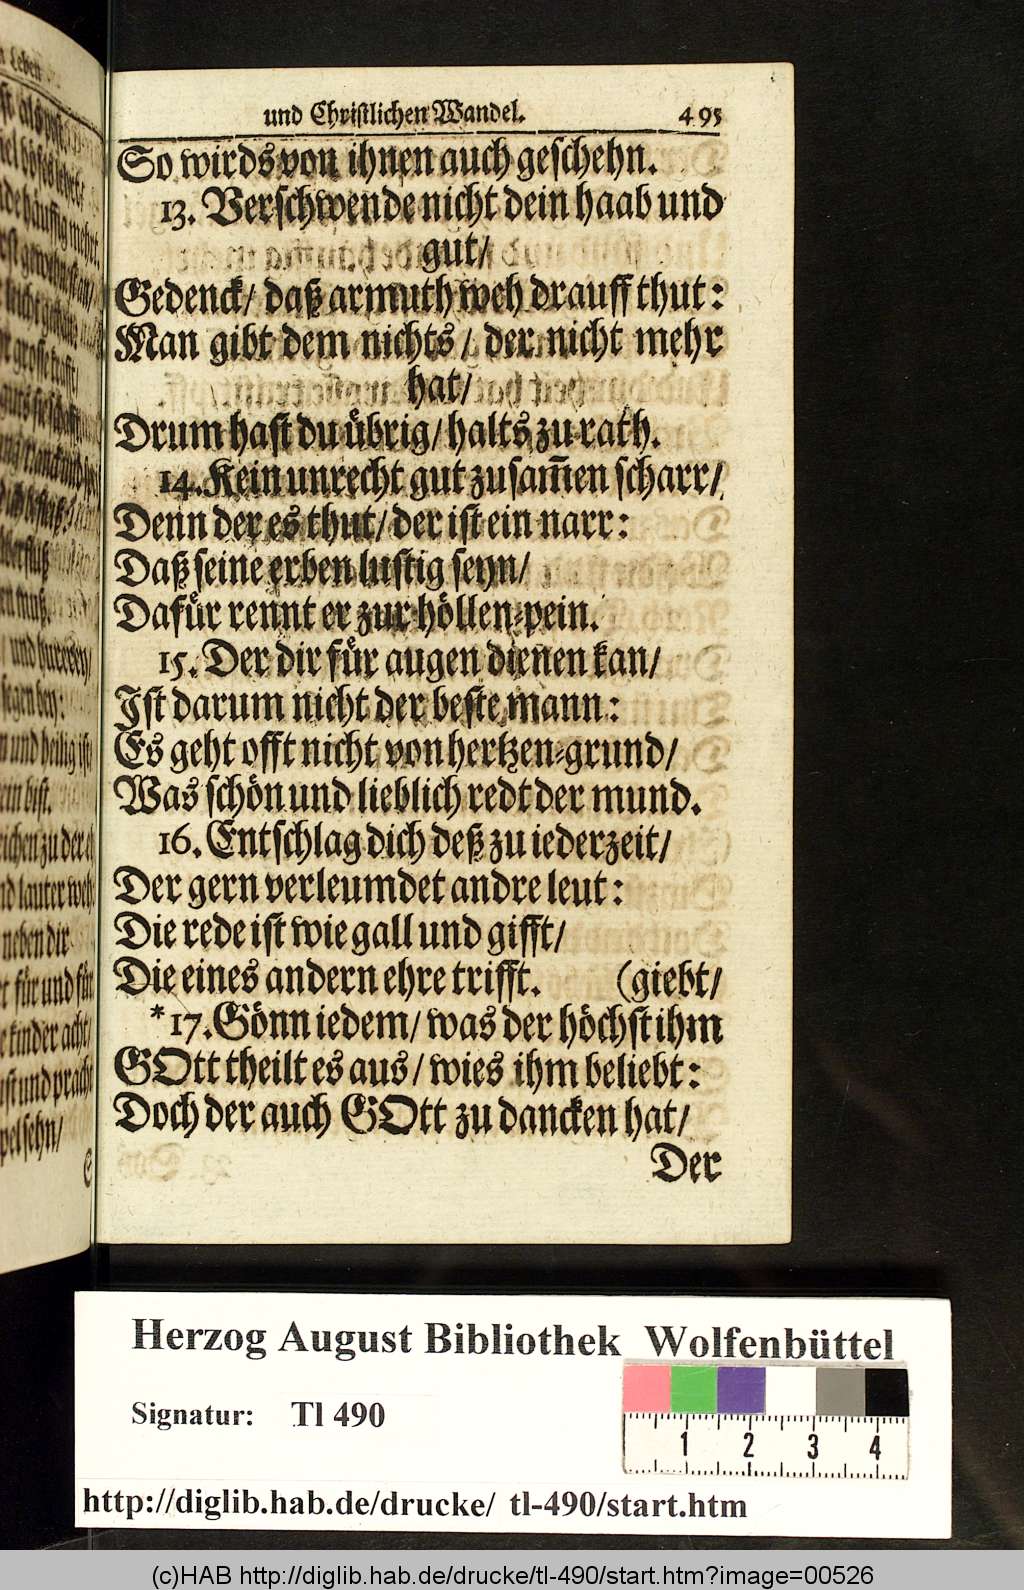 und Christlichen Wandel. 495
So wirds von ihnen auch geschehn.
13. Verschwende nicht dein haab und
gut/
Gedenck/ daß armuth weh drauff thut:
Man gibt dem nichts/ der nicht mehr
hat/
Drum hast du übrig/ halts zu rath.
14. Kein unrecht gut zusam̄en scharr/
Denn der es thut/ der ist ein narr:
Daß seine erben lustig seyn/
Dafür rennt er zur höllen-pein.
15. Der dir für augen dienen kan/
Ist darum nicht der beste mann:
Es geht offt nicht von hertzen-grund/
Was schön und lieblich redt der mund.
16. Entschlag dich deß zu iederzeit/
Der gern verleumdet andre leut:
Die rede ist wie gall und gifft/
Die eines andern ehre trifft. (giebt/
*17. Gönn iedem/ was der höchst ihm
GOtt theilt es aus/ wies ihm beliebt:
Doch der auch GOtt zu dancken hat/
Der
Herzog August Bibliothek Wolfenbüttel
Signatur: Tl 490
1 2 3 4
http://diglib.hab.de/drucke/ tl-490/start.htm
(c)HAB http://diglib.hab.de/drucke/tl-490/start.htm?image=00526